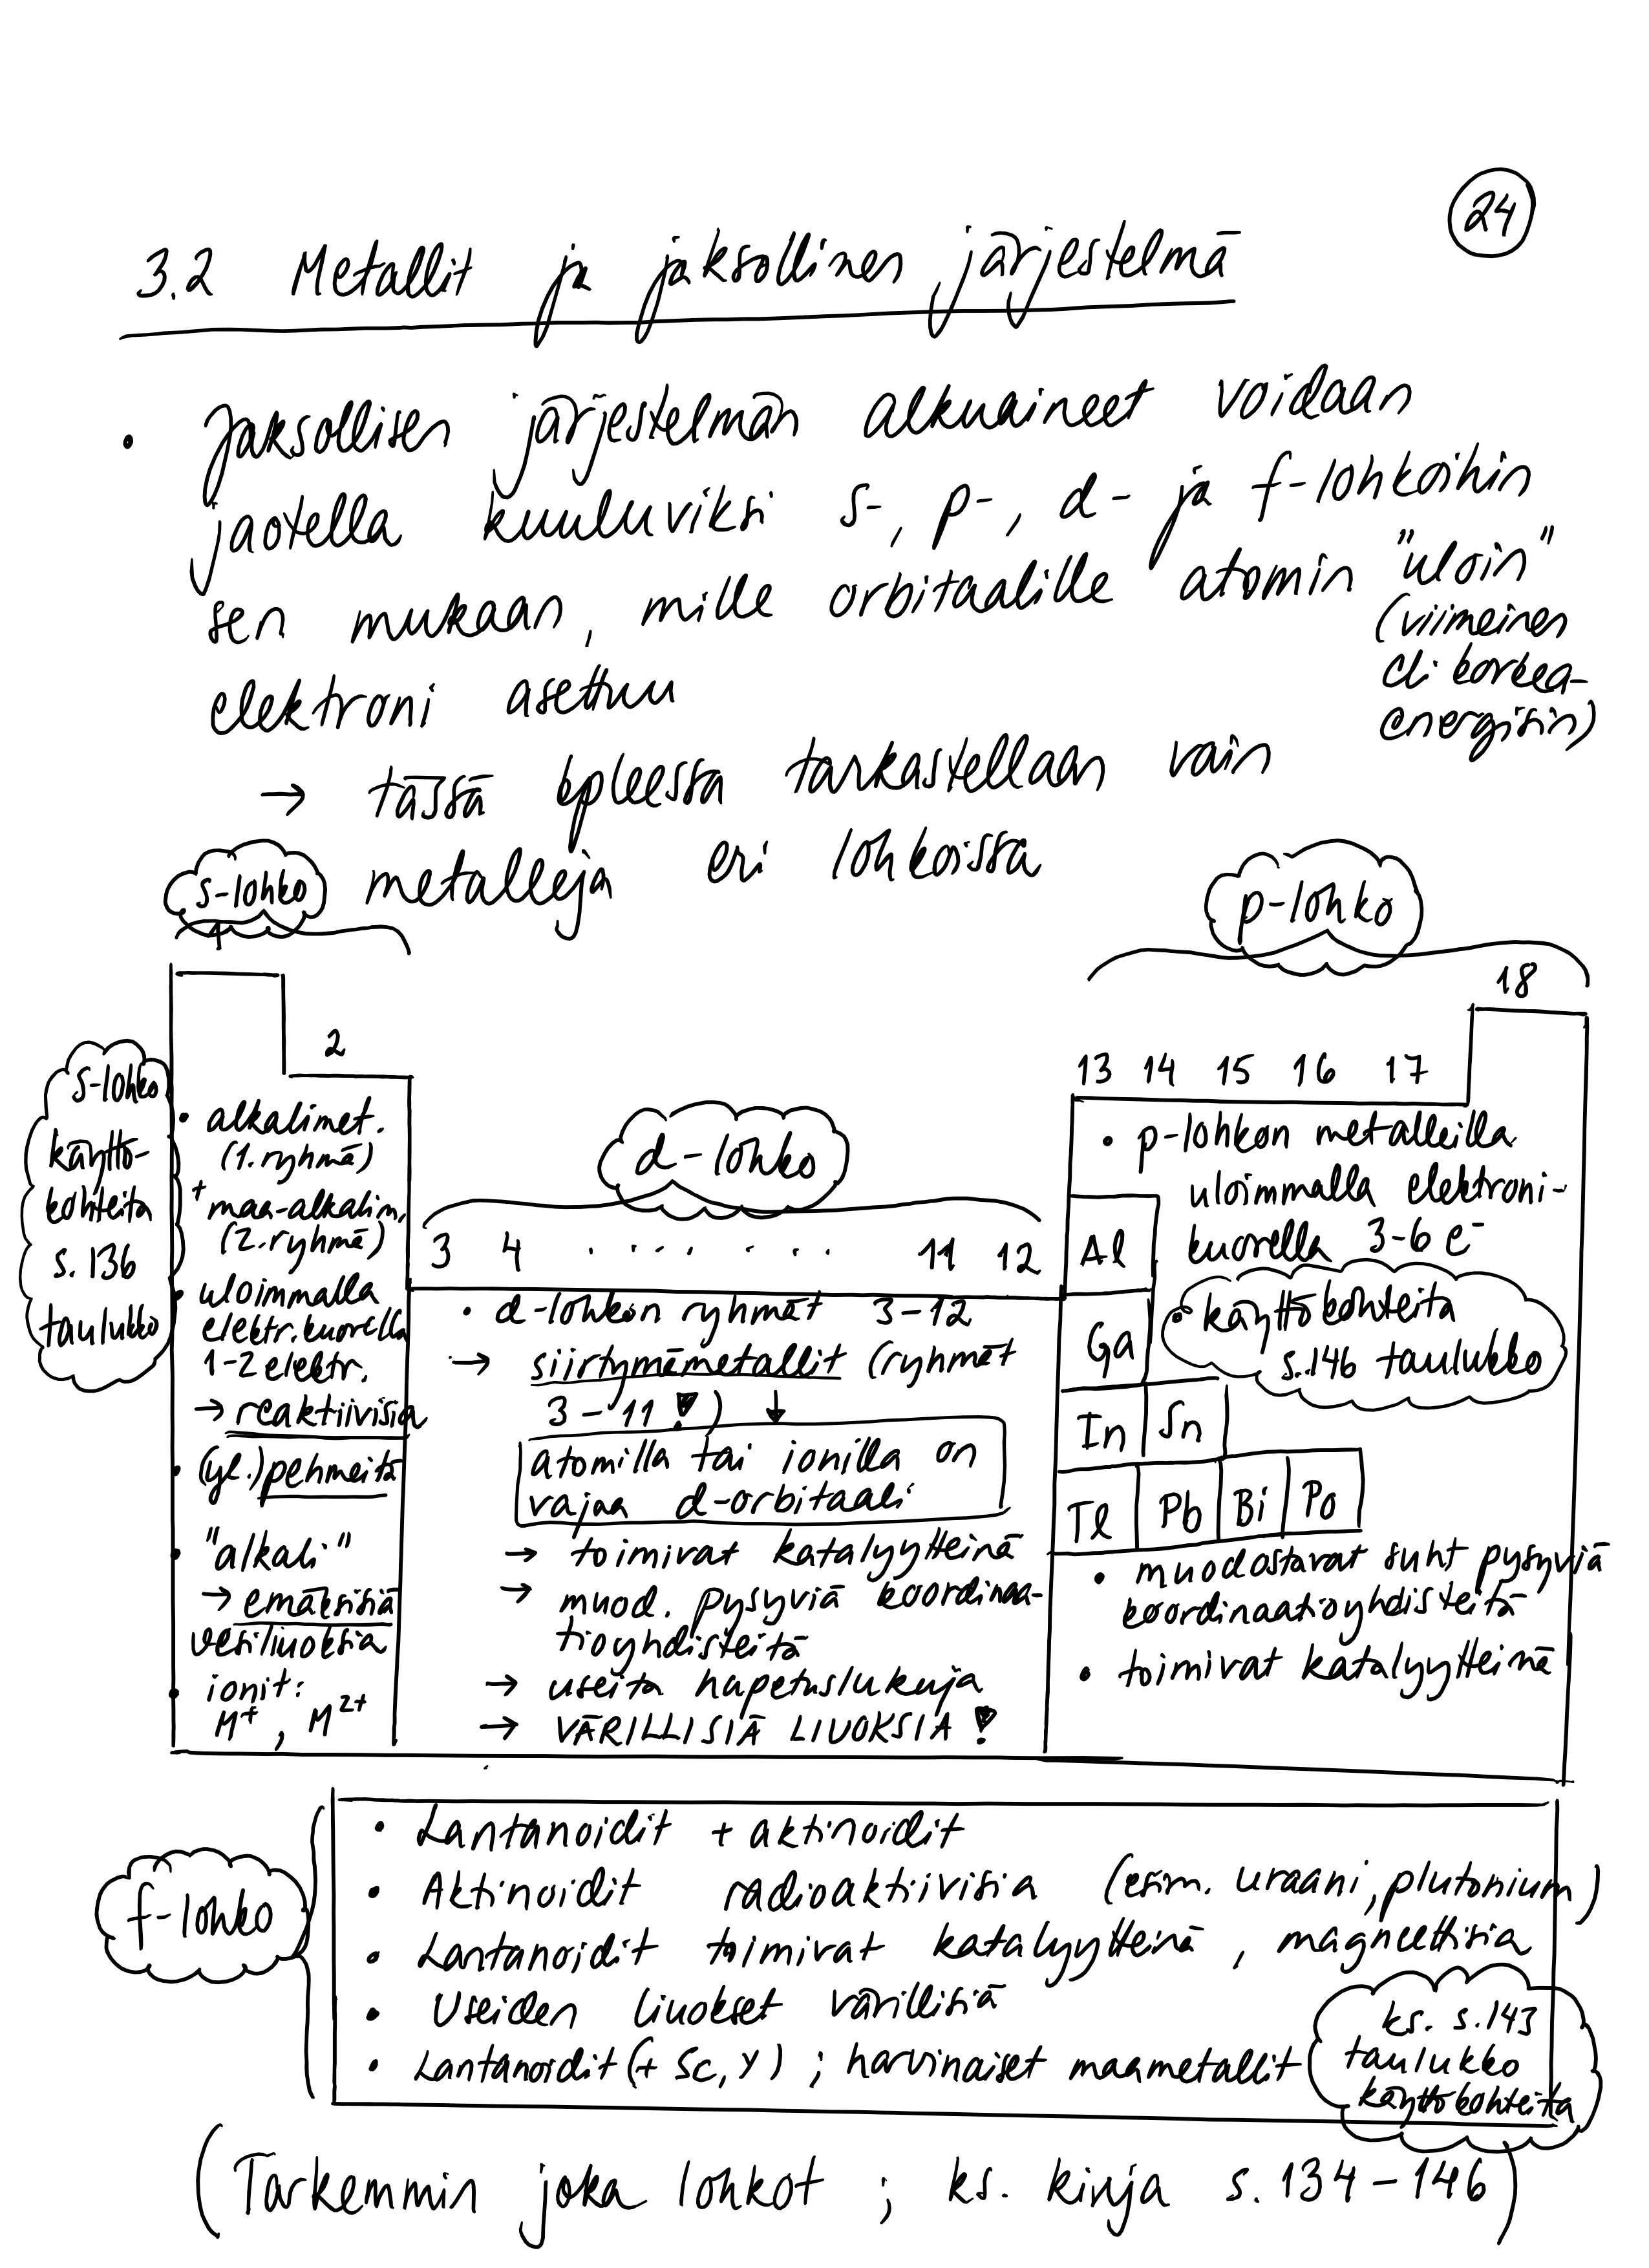 24
3.2 Metallit ja jaksollinen järjestelmä
• Jaksollisen järjestelmän alkuaineet voidaan
jaotella kuuluviksi s-, p-, d- ja f-lohkoihin
sen mukaan, mille orbitaalille atomin "uloin"
(viimeinen
eli korkea-
energisin)
elektroni asettuu
→ tässä kpleessa tarkastellaan vain
metalleja eri lohkoissa
s-lohko
1
2
s-lohko
käyttö-
kohteita
s. 136
taulukko
• alkalimet.
(1. ryhmä)
+ maa-alkalim.
(2. ryhmä)
• uloimmalla
elektr.kuorella
1-2 elektr.
→ reaktiivisia
• (yl.) pehmeitä
• "alkali"
→ emäksisiä
vesiliuoksia
• ionit:
M⁺, M²⁺
d-lohko
3 4 . . . . . . . 11 12
• d-lohkon ryhmät 3-12
→ siirtymämetallit (ryhmät
3-11!) ↓
atomilla tai ionilla on
vajaa d-orbitaali
→ toimivat katalyytteinä
→ muod. pysyviä koordinaa-
tioyhdisteitä
→ useita hapetuslukuja
→ VÄRILLISIÄ LIUOKSIA!
p-lohko
18
13 14 15 16 17
• p-lohkon metalleilla
uloimmalla elektroni-
kuorella 3-6 e⁻
Al
• käyttökohteita
s.146 taulukko
Ga
In Sn
Tl Pb Bi Po
• muodostavat suht pysyviä
koordinaatioyhdisteitä
• toimivat katalyytteinä
f-lohko
• Lantanoidit + aktinoidit
• Aktinoidit radioaktiivisia (esim. uraani, plutonium)
• Lantanoidit toimivat katalyytteinä, magneettisia
• Useiden liuokset värillisiä
• Lantanoidit (+ Sc, Y) ; harvinaiset maametallit
ks. s.143
taulukko
käyttökohteita
(Tarkemmin joka lohkot ; ks. kirja s. 134-146)